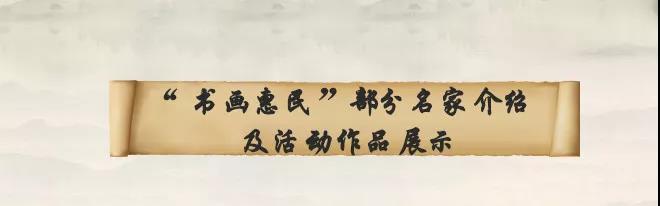 “书画惠民”部分名家介绍
及活动作品展示